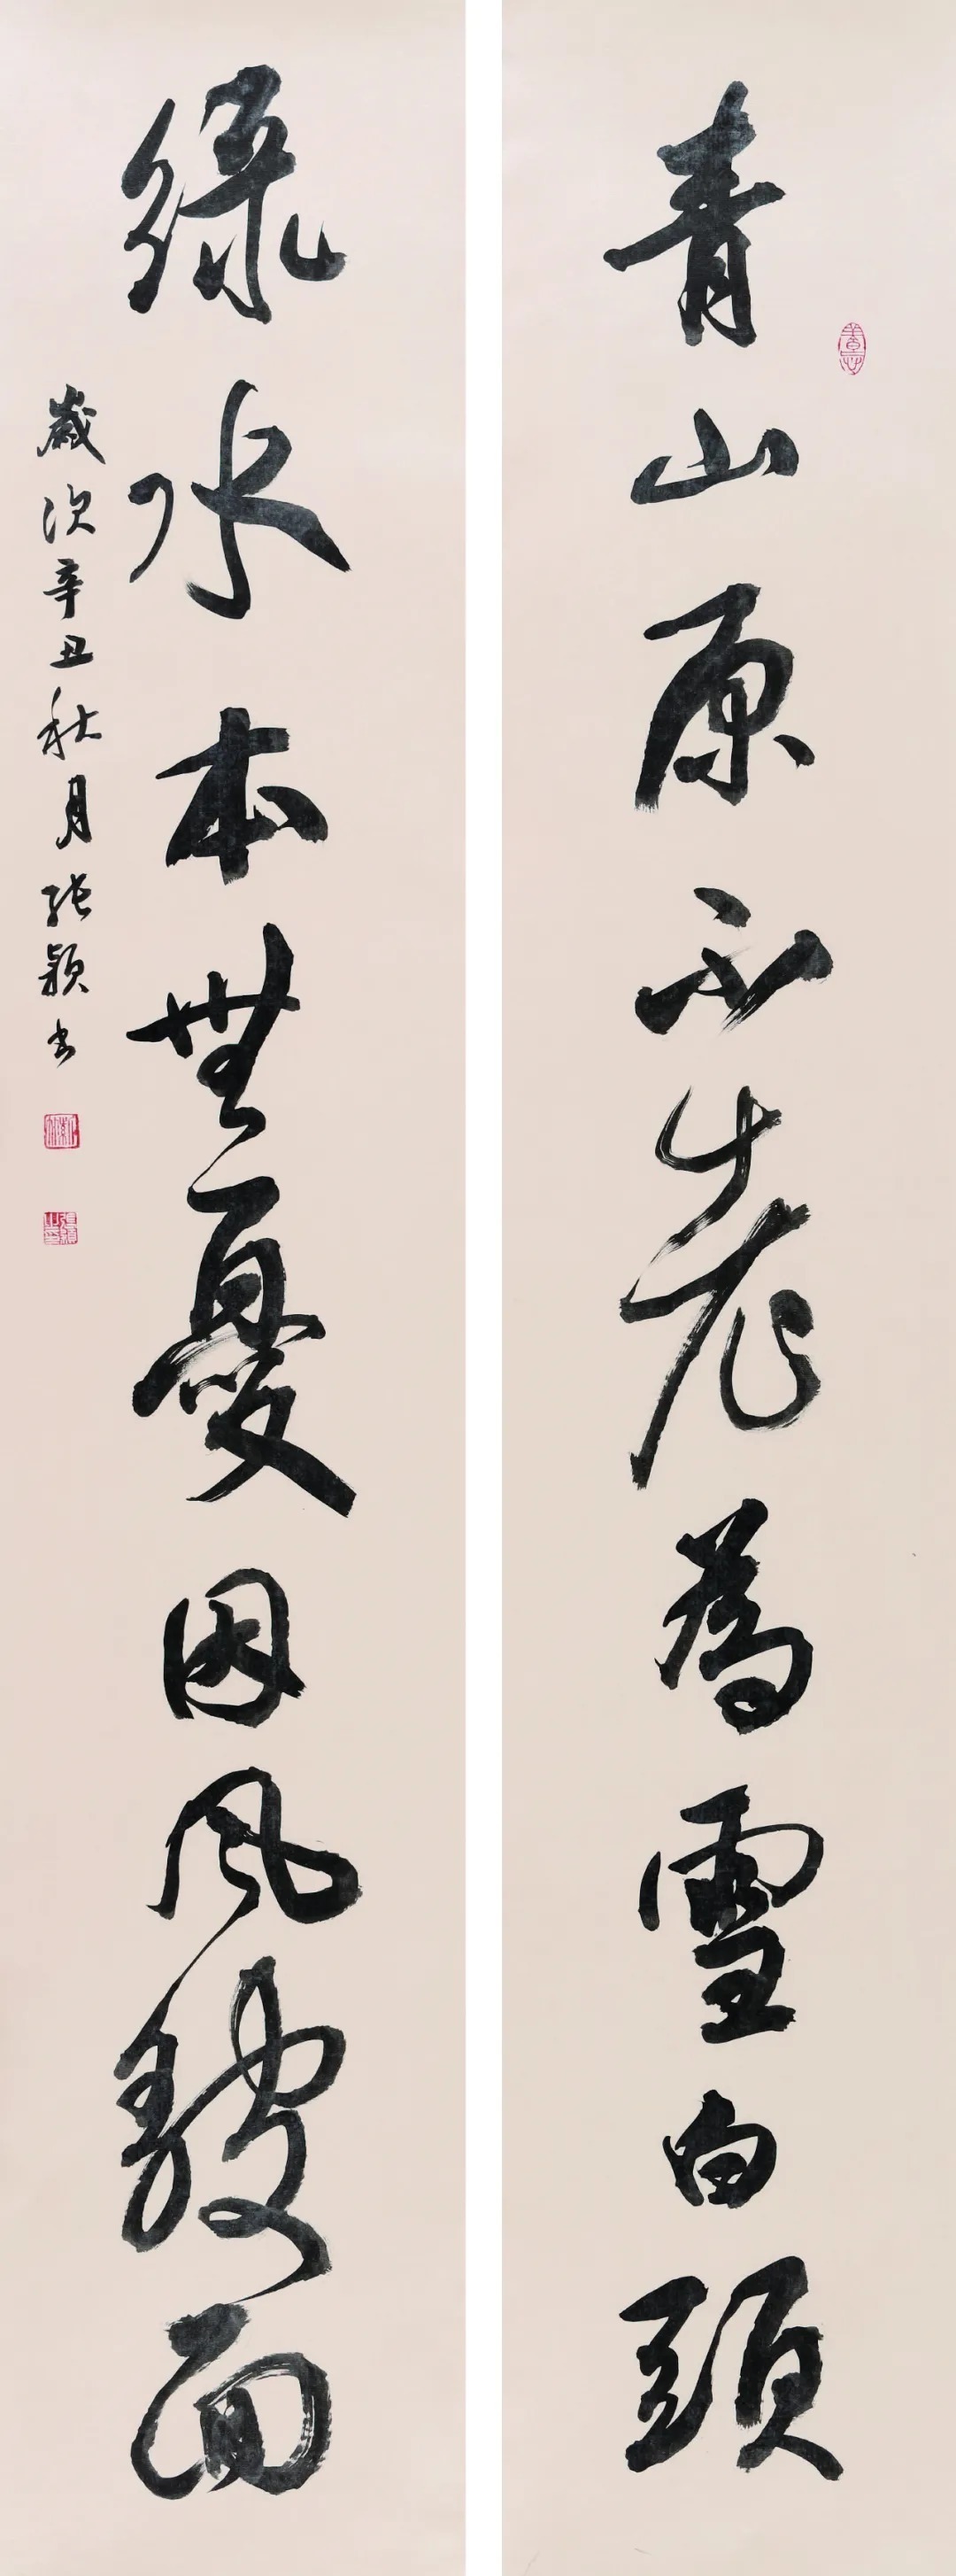 青山原不老為雪白頭
綠水本無憂因風皺面
歲次辛丑秋月張穎書